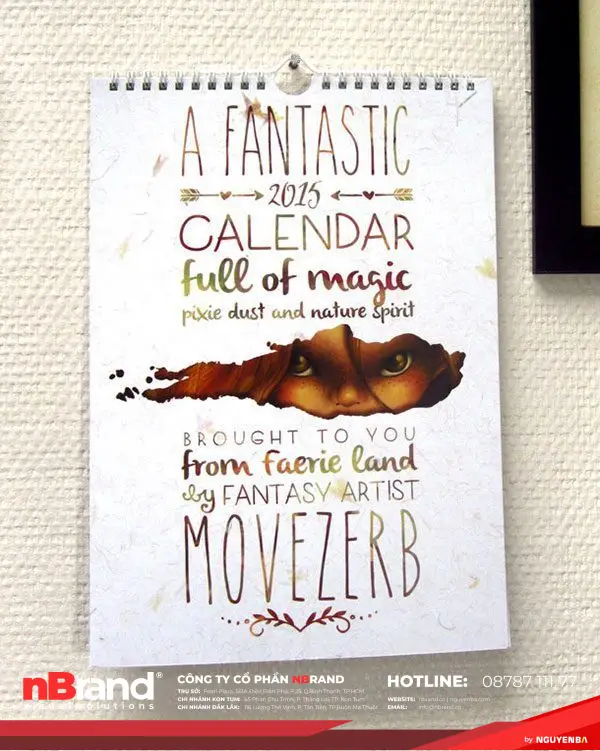 A FANTASTIC
2015
CALENDAR
full of magic
pixie dust and nature spirit
BROUGHT TO YOU
from faerie land
by FANTASY ARTIST
MOVEZERB
nBrand®
CÔNG TY CỔ PHẦN NBRAND
TRỤ SỞ:
CHI NHÁNH KON TUM:
CHI NHÁNH ĐĂK LĂK:
HOTLINE: 08787 111 77
WEBSITE: nbrand.co | nguyenba.com
EMAIL: info@nbrand.co
by NGUYENBA